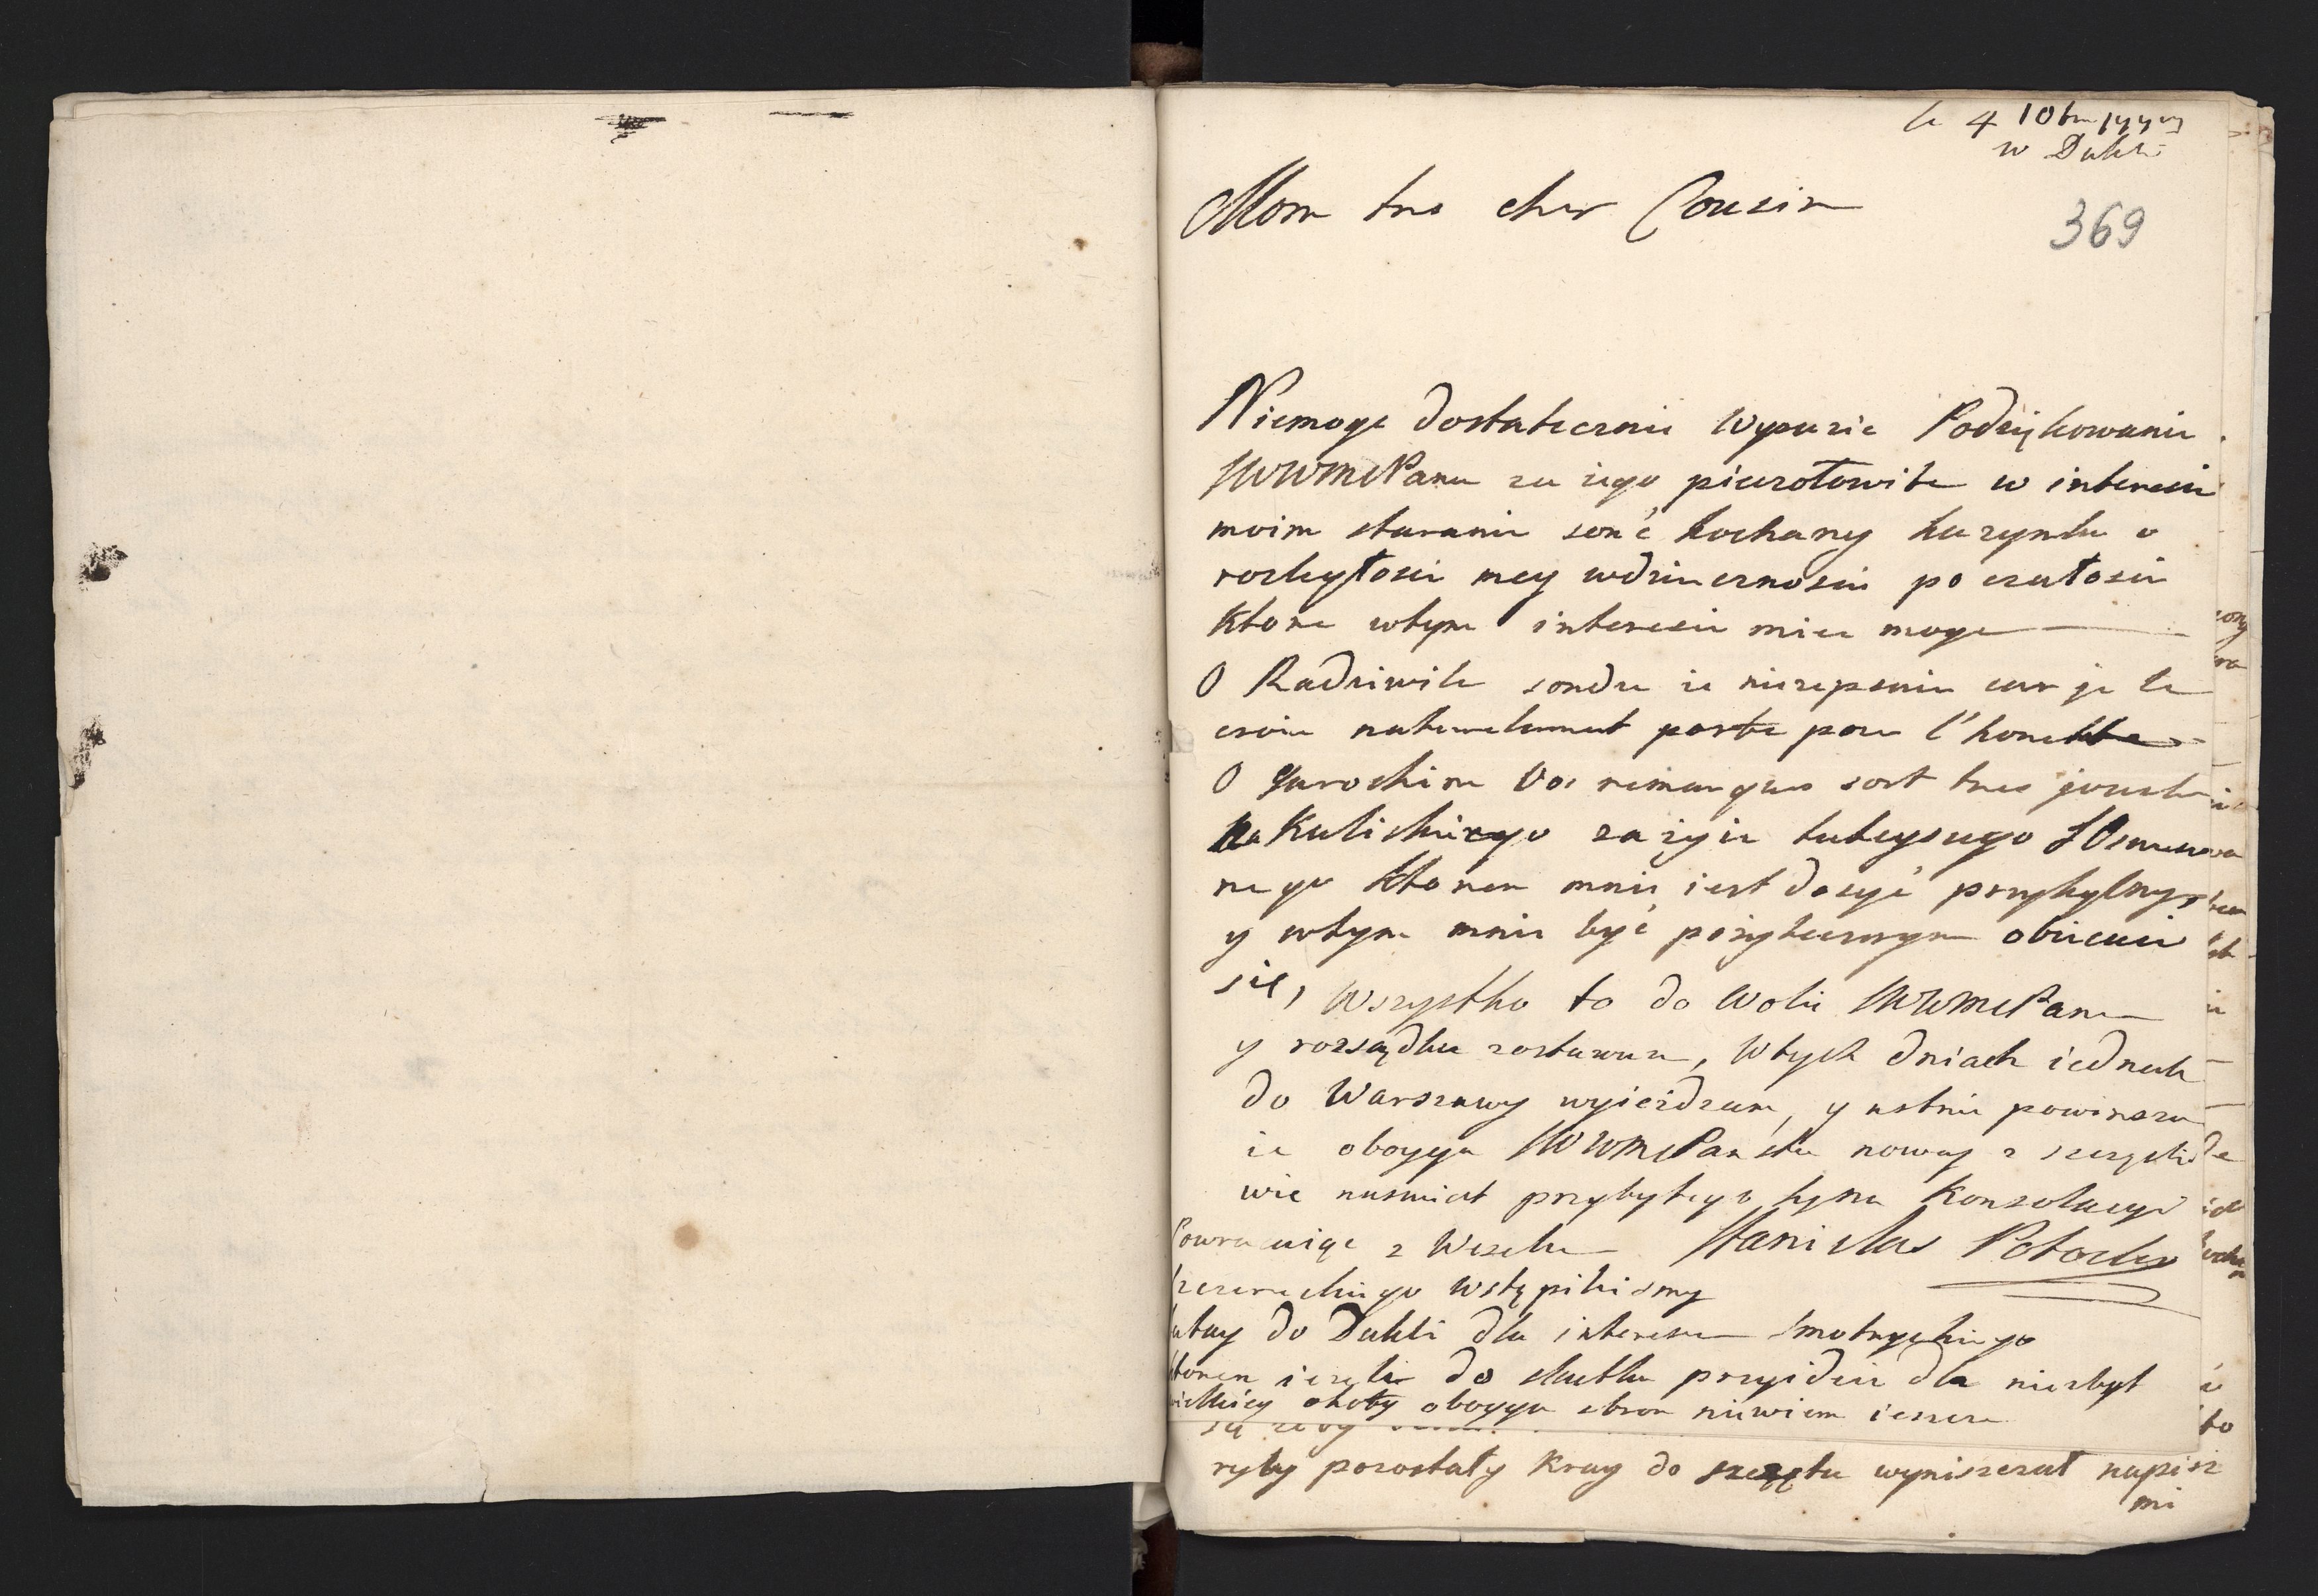 le 4 10br 1777
w Dukli
Mon tres cher Cousin
369
Niemoge dostatecznie Wyrazic Podziękowanie
JWWMCPanu za iego pieczołowite w interesie
moim staranie sonć kochany kuzynku o
rozległosci mey wdziencznosci po czułosci
ktore wtym interesie miec moge
O Radziwile sondze ze niezepsuie car je le
crois naturelement porte pour l'honette
O Jarockim Vos remarques sont tres juste
Na Kulickiego zazyie tuteyszego
nego ktoren mnie iest dosyć przychylnym
y wtym mnie być pozytecznym obiecuie
sie, Wszystko to do Woli JWWMCPana
y rozsądku zostawuie, Wtych dniach iednak
do Warszawy wyiezdzam, y ustnie powinszu
ie oboyga JWWMCPanstwu nowey z szczęsli
wie naswiat przybytego syna Konsolacyi
Powracaiąc z Wesela Stanislas Potocki
wstąpilismy
tutay do Dukli dla interesu Smotryckiego
ktoren iezeli do skutku przyidzie dla niezbyt
wielkiey ochoty oboyga stron niewiem ieszcze
są zeby
ryby pozostały Kray do szczętu wyniszczał napisz
mi